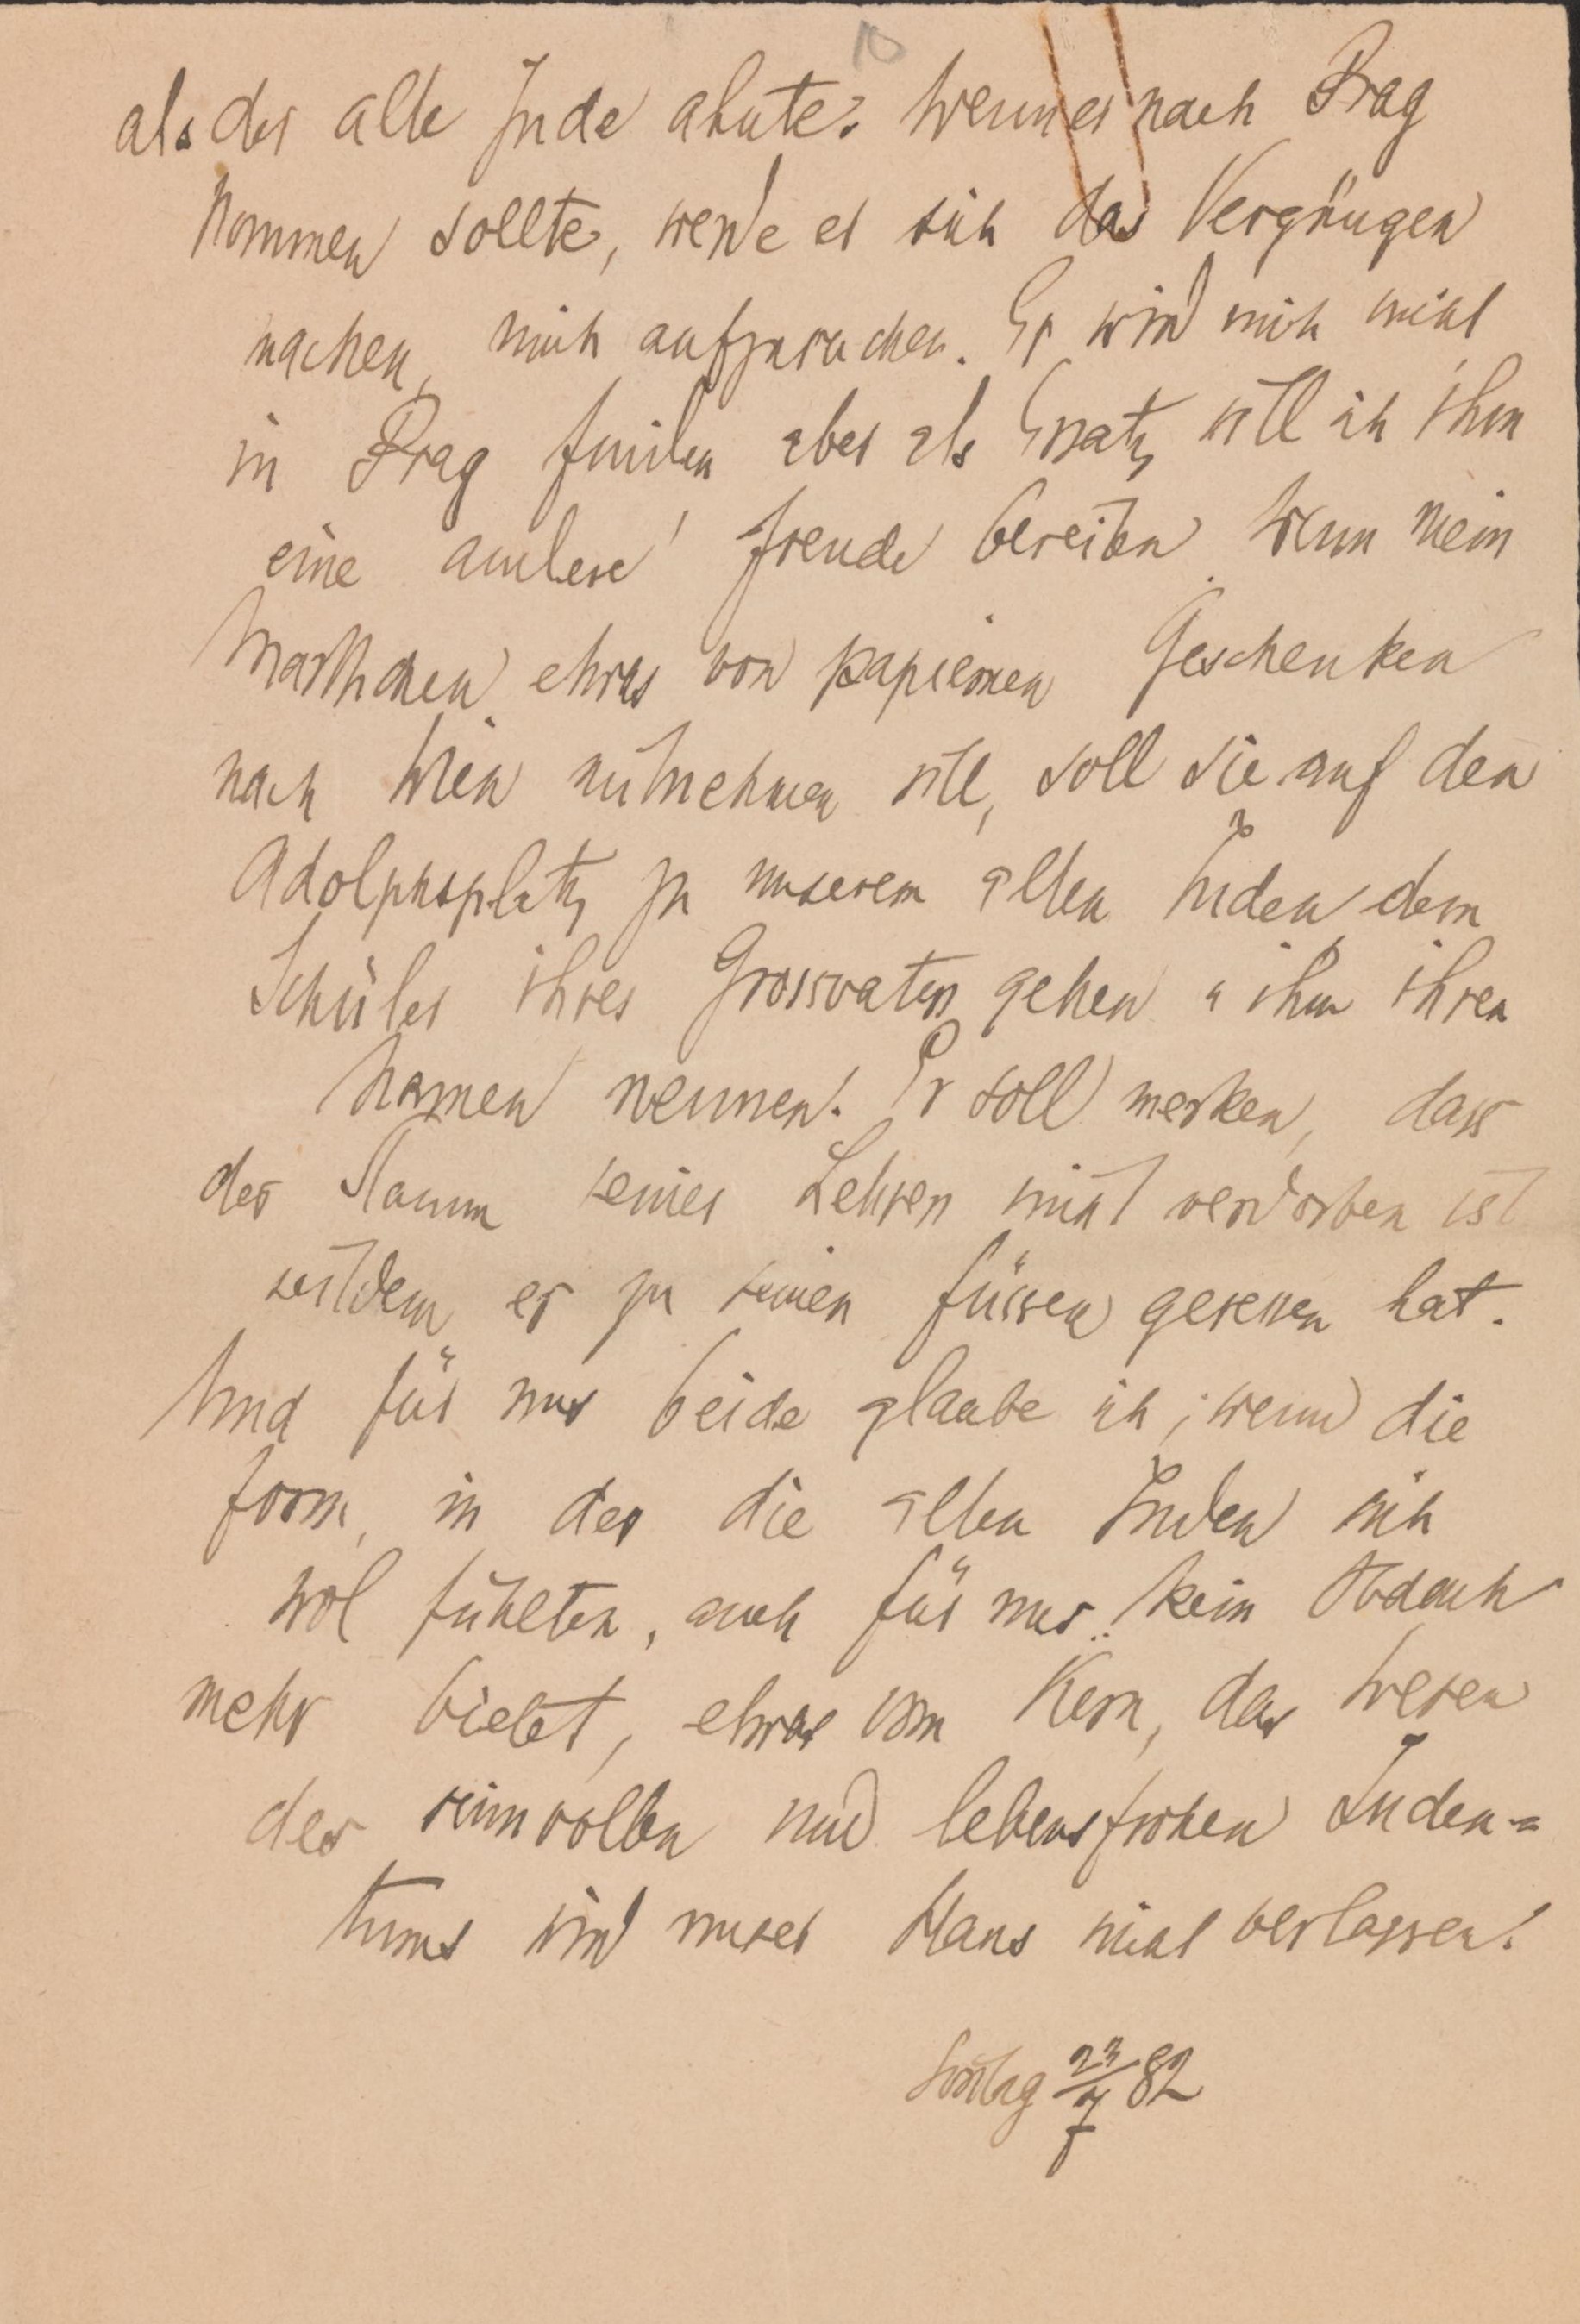 10
als der alte Jude ahnte. Wenn er nach Prag
kommen sollte, werde er sich das Vergnügen
machen, mich aufzusuchen. Er wird mich nicht
in Prag finden, aber als Ersatz will ich ihm
eine andere Freude bereiten. Wenn mein
Marthchen etwas von papiernen Geschenken
nach Wien mitnehmen will, soll sie auf den
Adolphsplatz zu unserem alten Juden, dem
Schüler ihres Grossvaters gehen u ihm ihren
Namen nennen. Er soll merken, dass
der Stamm seines Lehrers nicht verdorben ist
seitdem er zu seinen Füssen gesessen hat.
Und für uns beide glaube ich; wenn die
Form, in der die alten Juden sich
wol fühlten, auch für uns kein Obdach
mehr bietet, etwas vom Kern, das Wesen
des sinnvollen und lebensfrohen Juden-
tums wird unser Haus nicht verlassen.
Sontag 23/7 82